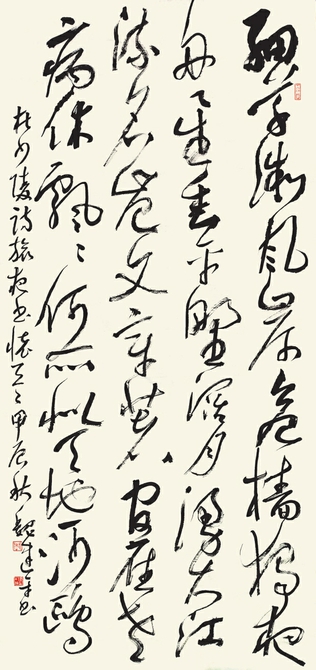 細草微風岸危檣獨夜
舟星垂平野闊月湧大江
流名豈文章著官應老
病休飄〻何所似天地一沙鷗
杜少陵詩旅夜書懷甲辰秋魏書